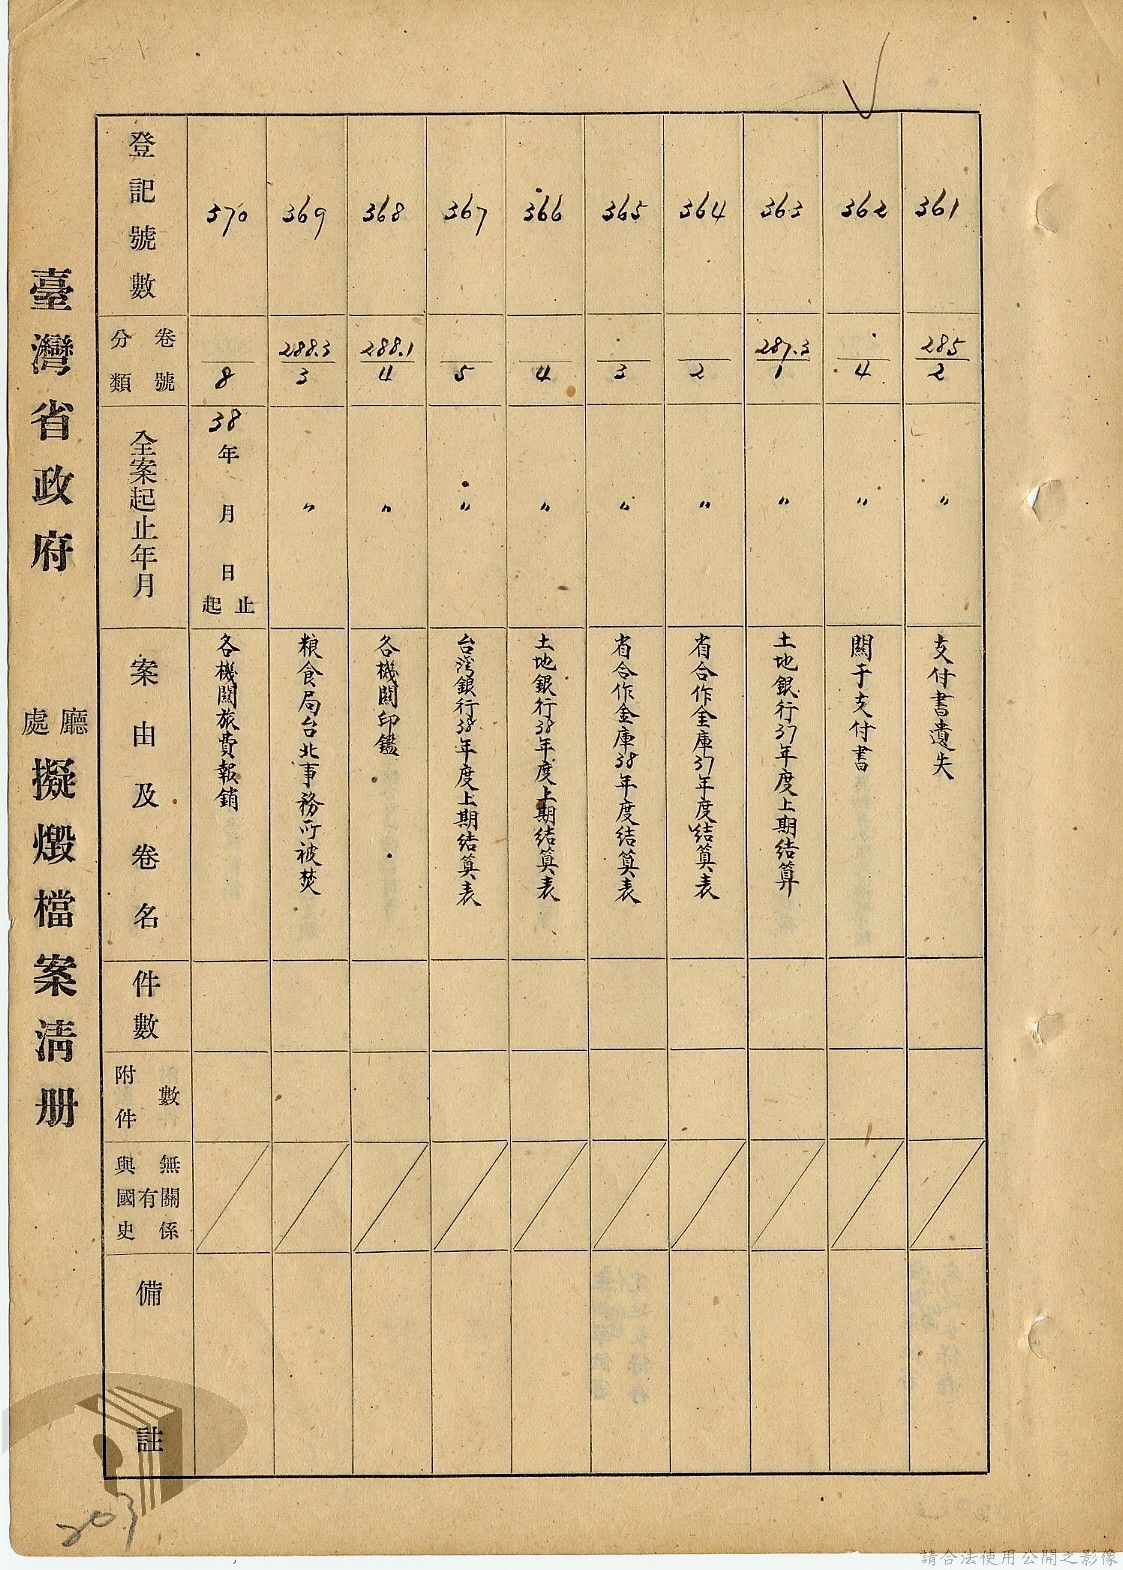 臺灣省政府 廳處 擬燬檔案清册
登記號數
卷號分類
全案起止年月
案由及卷名
件數
附件數
與國史有無關係
備註
370
8
38年 月 日起止
各機關旅費報銷
369
288.3
3
〃
粮食局台北事務所被焚
368
288.1
4
〃
各機關印鑑
367
5
〃
台灣銀行38年度上期结算表
366
4
〃
土地銀行38年度上期结算表
365
3
〃
省合作金庫38年度结算表
364
2
〃
省合作金庫37年度结算表
363
287.3
1
〃
土地銀行37年度上期结算
362
4
〃
關于支付書
361
285
2
〃
支付書遺失
203
請合法使用公開之影像